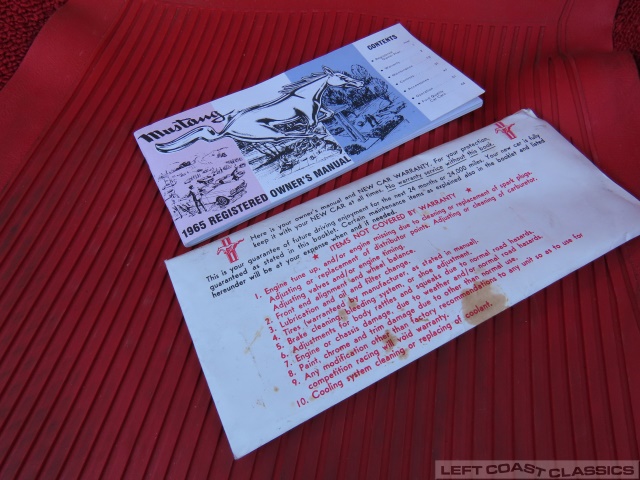 Mustang
1965 REGISTERED OWNER'S MANUAL
CONTENTS
Here is your owner's manual and NEW CAR WARRANTY. For your protection,
keep it with your NEW CAR at all times. No warranty service without this book.
This is your guarantee of future driving enjoyment for the next 24 months or 24,000 miles. Your new car is fully
guaranteed as stated in this booklet. Certain maintenance items as explained also in the booklet and listed
hereunder will be at your expense when and if needed.
★ ITEMS NOT COVERED BY WARRANTY ★
1. Engine tune up, and/or engine missing due to cleaning or replacement of spark plugs.
Adjusting or replacement of distributor points. Adjusting or cleaning of carburetor.
Adjusting valves and/or engine timing.
2. Front end alignment and wheel balance.
3. Lubrication and oil and filter change.
4. Tires (warranted by manufacturer, as stated in manual).
5. Brake cleaning, bleeding system, or shoe adjustment.
6. Adjustments for body rattles and squeaks due to normal road hazards.
7. Engine or chassis damage, due to weather and/or normal road hazards.
8. Paint, chrome and trim damage due to other than normal use.
9. Any modification other than factory recommendations to any unit so as to use for
competition racing will void warranty.
10. Cooling system cleaning or replacing of coolant.
LEFT COAST CLASSICS